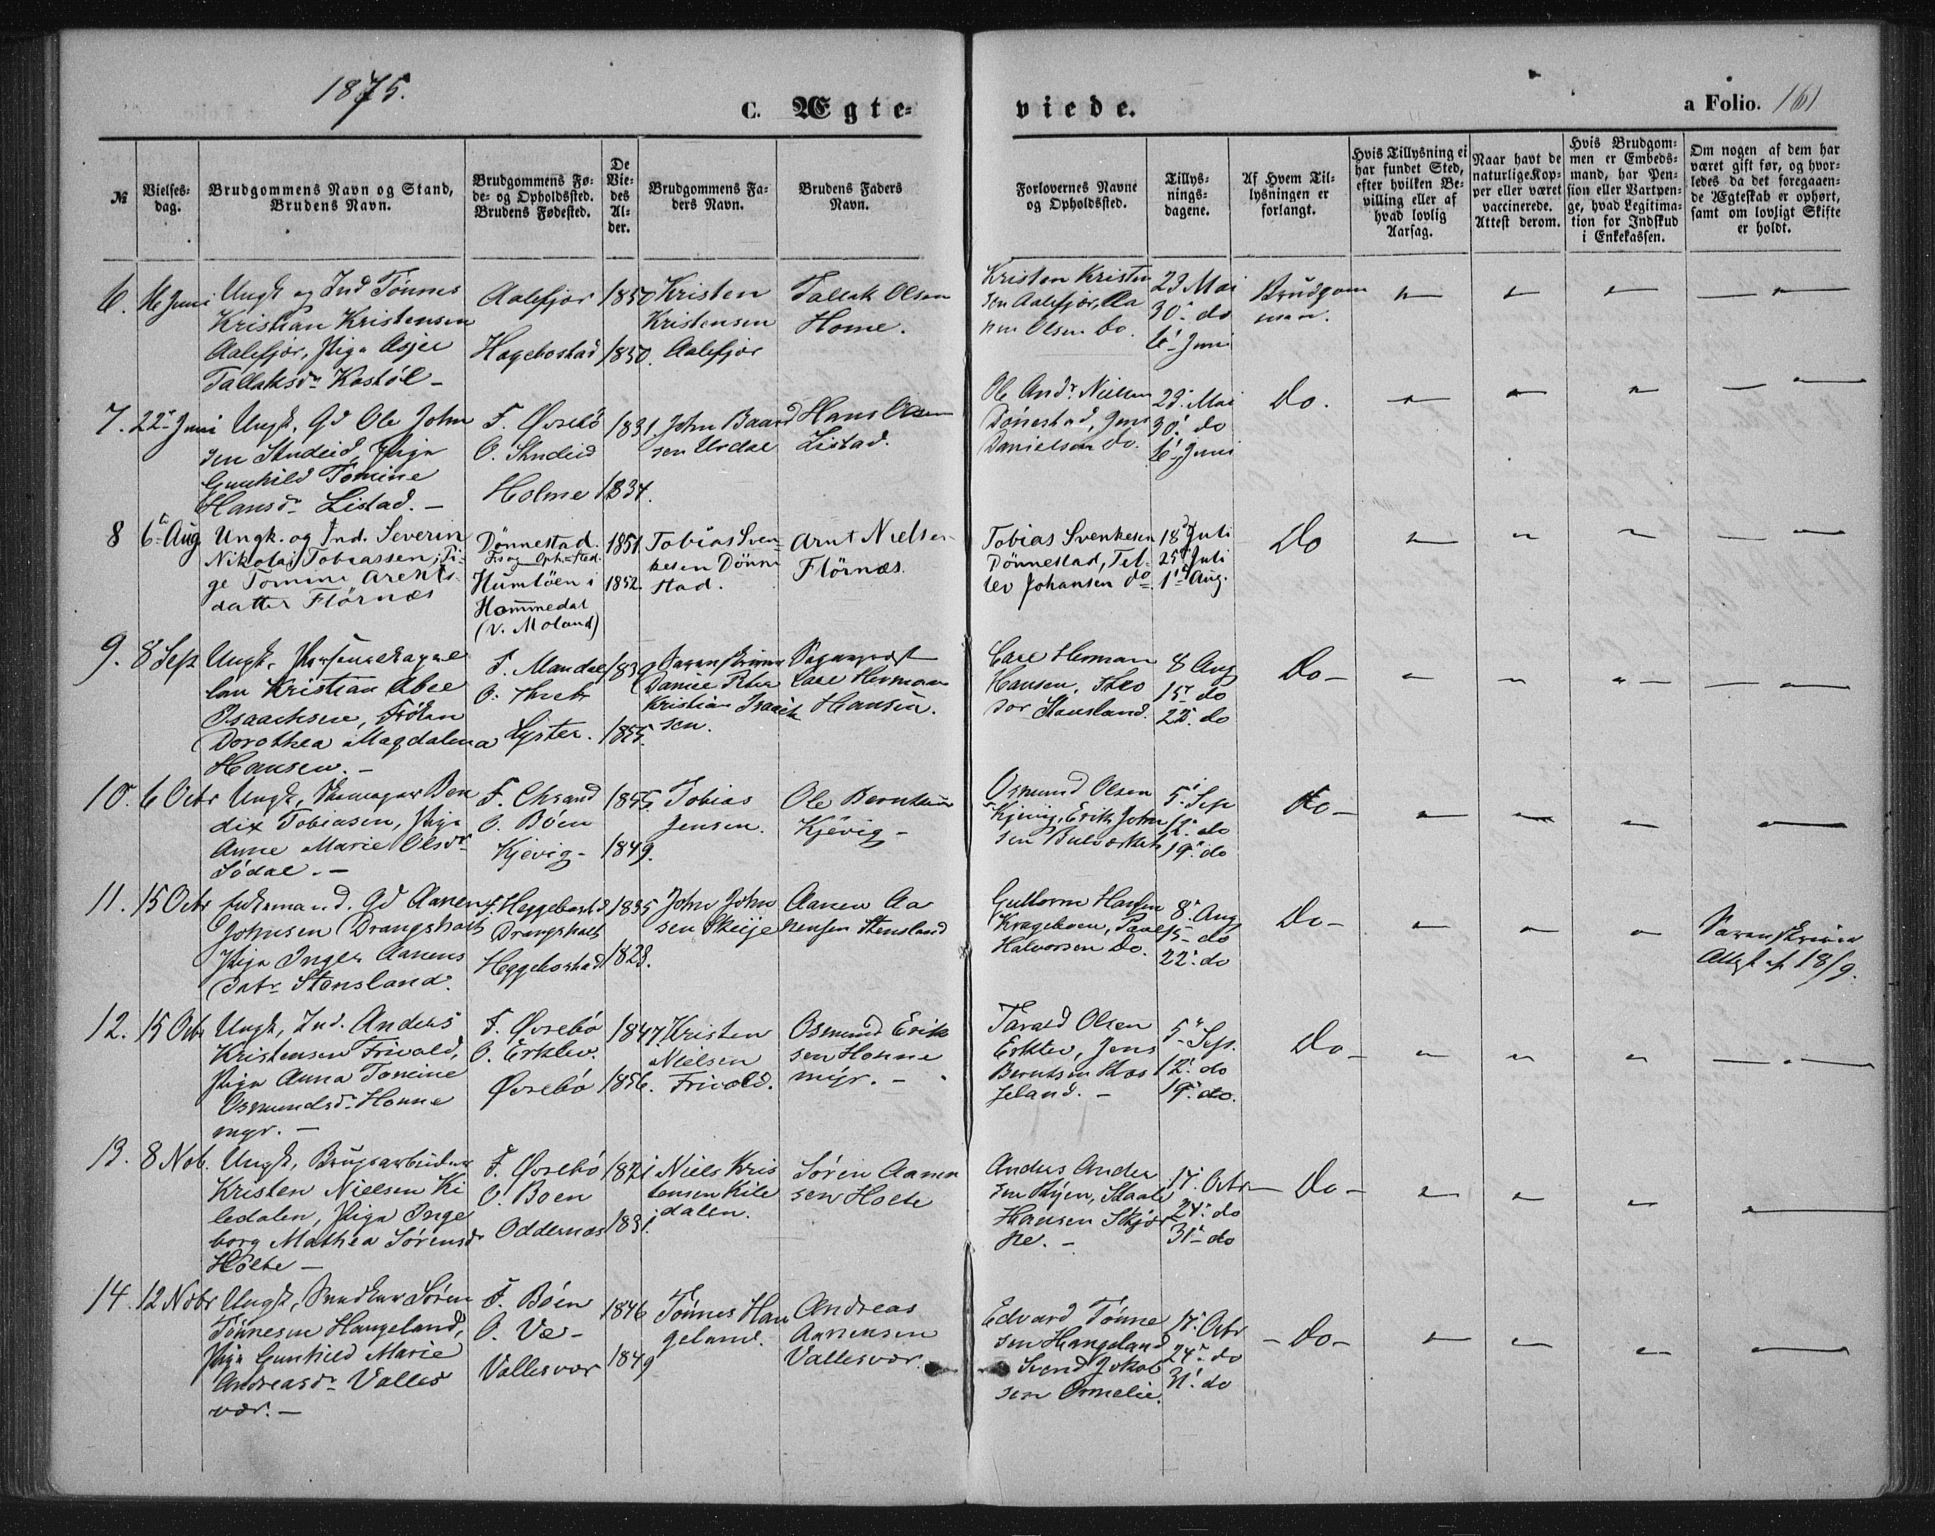 1875.
C. Ægte=
viede.
a Folio. 161
№
Vielses-
dag.
Brudgommens Navn og Stand,
Brudens Navn.
Brudgommens Fø-
de- og Opholdssted.
Brudens Fødested.
De
Vie-
des
Al-
der.
Brudgommens Fa-
ders Navn.
Brudens Faders
Navn.
Forlovernes Navne
og Opholdssted.
Tillys-
nings-
dagene.
Af Hvem Til-
lysningen er
forlangt.
Hvis Tillysning ei
har fundet Sted,
efter hvilken Be-
villing eller af
hvad lovlig
Aarsag.
Naar havt de
naturlige Kop-
per eller været
vaccinerede.
Attest derom.
Hvis Brudgom-
men er Embeds-
mand, har Pen-
sion eller Vartpen-
ge, hvad Legitima-
tion for Indskud
i Enkekassen.
Om nogen af dem har
været gift før, og hvor-
ledes da det foregaaen-
de Ægteskab er ophørt,
samt om lovligt Skifte
er holdt.
6. 16 Juni
Ungk og Ind Tønnes
Kristian Kristensen
Aalefjær, Pige Asjer
Tallaksdr Kostøl -
Aalefjær
Hægebostad
1850
1850.
Kristen
Kristensen
Aalefjær
Tallak Olsen
Home.
Kristen Kristen
sen Aalefjær, Aa
nen Olsen do.
23 Mai
30. do
6 Juni
Brudgom
men.
7. 22 Juni
Ungk. Gd Ole John
sen Studeid, Pige
Gunhild Tomine
Hansdr Listad. -
F. Øvrebø
O. Studeid
Holme
1831
1834.
John Baard
sen Urdal
Hans Olsen
Listad.
Ole Andr. Nielsen
Dønnestad, Jens
Danielsen do.
23. Mai
30. do
6 Juni
Do.
8 6 Aug
Ungk. og Ind. Severin
Nikolai Tobiassen, Pi-
ge Tomine Arents-
datter Flørnæs
Dønnestad.
F. og Oph. Sted.
Humløen i
Hommedal
(V. Moland)
1851
1852.
Tobias Sven-
kesen Dønne
stad.
Arnt Nielsen
Flørnæs.
Tobias Svenkesen
Dønnestad, Tel-
lev Johansen do
18 Juli
25 Juli
1 Aug.
Do
9. 8 Sep
Ungk.
Kristian Abel
Isaachsen, Frøken
Dorothea Magdalena
Hansen. -
F. Mandal
O.
Lyster.
1855.
Sorenskriver
Daniel Peter
Kristian Isaach
sen.
Sogneprest
Carl Herman
Hansen.
Carl Herman
Hansen,
Stausland.
8 Aug
15. do
22. do
Do -
10. 6 Octr
Ungk, Skomager Ben
dix Tobiasen, Pige
Anne Marie Olsdr
Sødal. -
F. Chrsand
O. Bøen
Kjevig -
1849.
Tobias
Jensen.
Ole Berntsen
Kjevig -
Osmund Olsen
Kjevig, Erik John
sen
5. Sep
12. do
19. do
Do -
11. 15 Octr
Enkemand. Gd Aanen
Johnsen Drangsholt
Pige Inger Aanens
datr Stensland.
F. Heggebostd
Drangsholt
Heggebostad
1835
1828.
John John
sen Skeije
Aanen Aa
nensen Stensland
Guttorm Hansen
Kragebøen, Paul
Halvorsen Do.
8. Aug
15 - do
22. do
Do -
Sorenskriver
Attest af 18/9.
12. 15 Octr
Ungk, Ind. Anders
Kristensen Frivold,
Pige Anna Tomine
Osmundsdr Honne
myr. -
F. Øvrebø
O. Erklev.
Øvrebø
1847.
1856.
Kristen
Nielsen
Frivold.
Osmund Erik
sen Honne
myr. -
Tarald Olsen
Erklev, Jens
Berntsen Hos
seland. -
5. Sep.
12. do
19. do.
Do -
13. 8 Nob.
Ungk, Brugsarbeider
Kristen Nielsen Ki
ledalen, Pige Inge
borg Mathea Sørensdr
Holte -
F. Øvrebø
O. Boen
Oddernes
1831
Niels Kris
tensen Kile
dalen.
Søren Aanen
sen Holte
Anders Ander
sen
Hansen Skjør
17. Octr
24. do
31 - do
Do -
14. 12 Nobr
Ungk, Snedker Søren
Tønnesen Haugeland,
Pige Gunhild Marie
Andreasdr Valles
vær. -
F. Bøen
O. Ve -
Vallesvær
1846
1849
Tønnes Hau
geland.
Andreas
Aanensen
Vallesvær.
Edvard Tønne
sen Haugeland
Svend Jakob
sen Ormelie.
17. Octr
24. do
31. do
- Do -